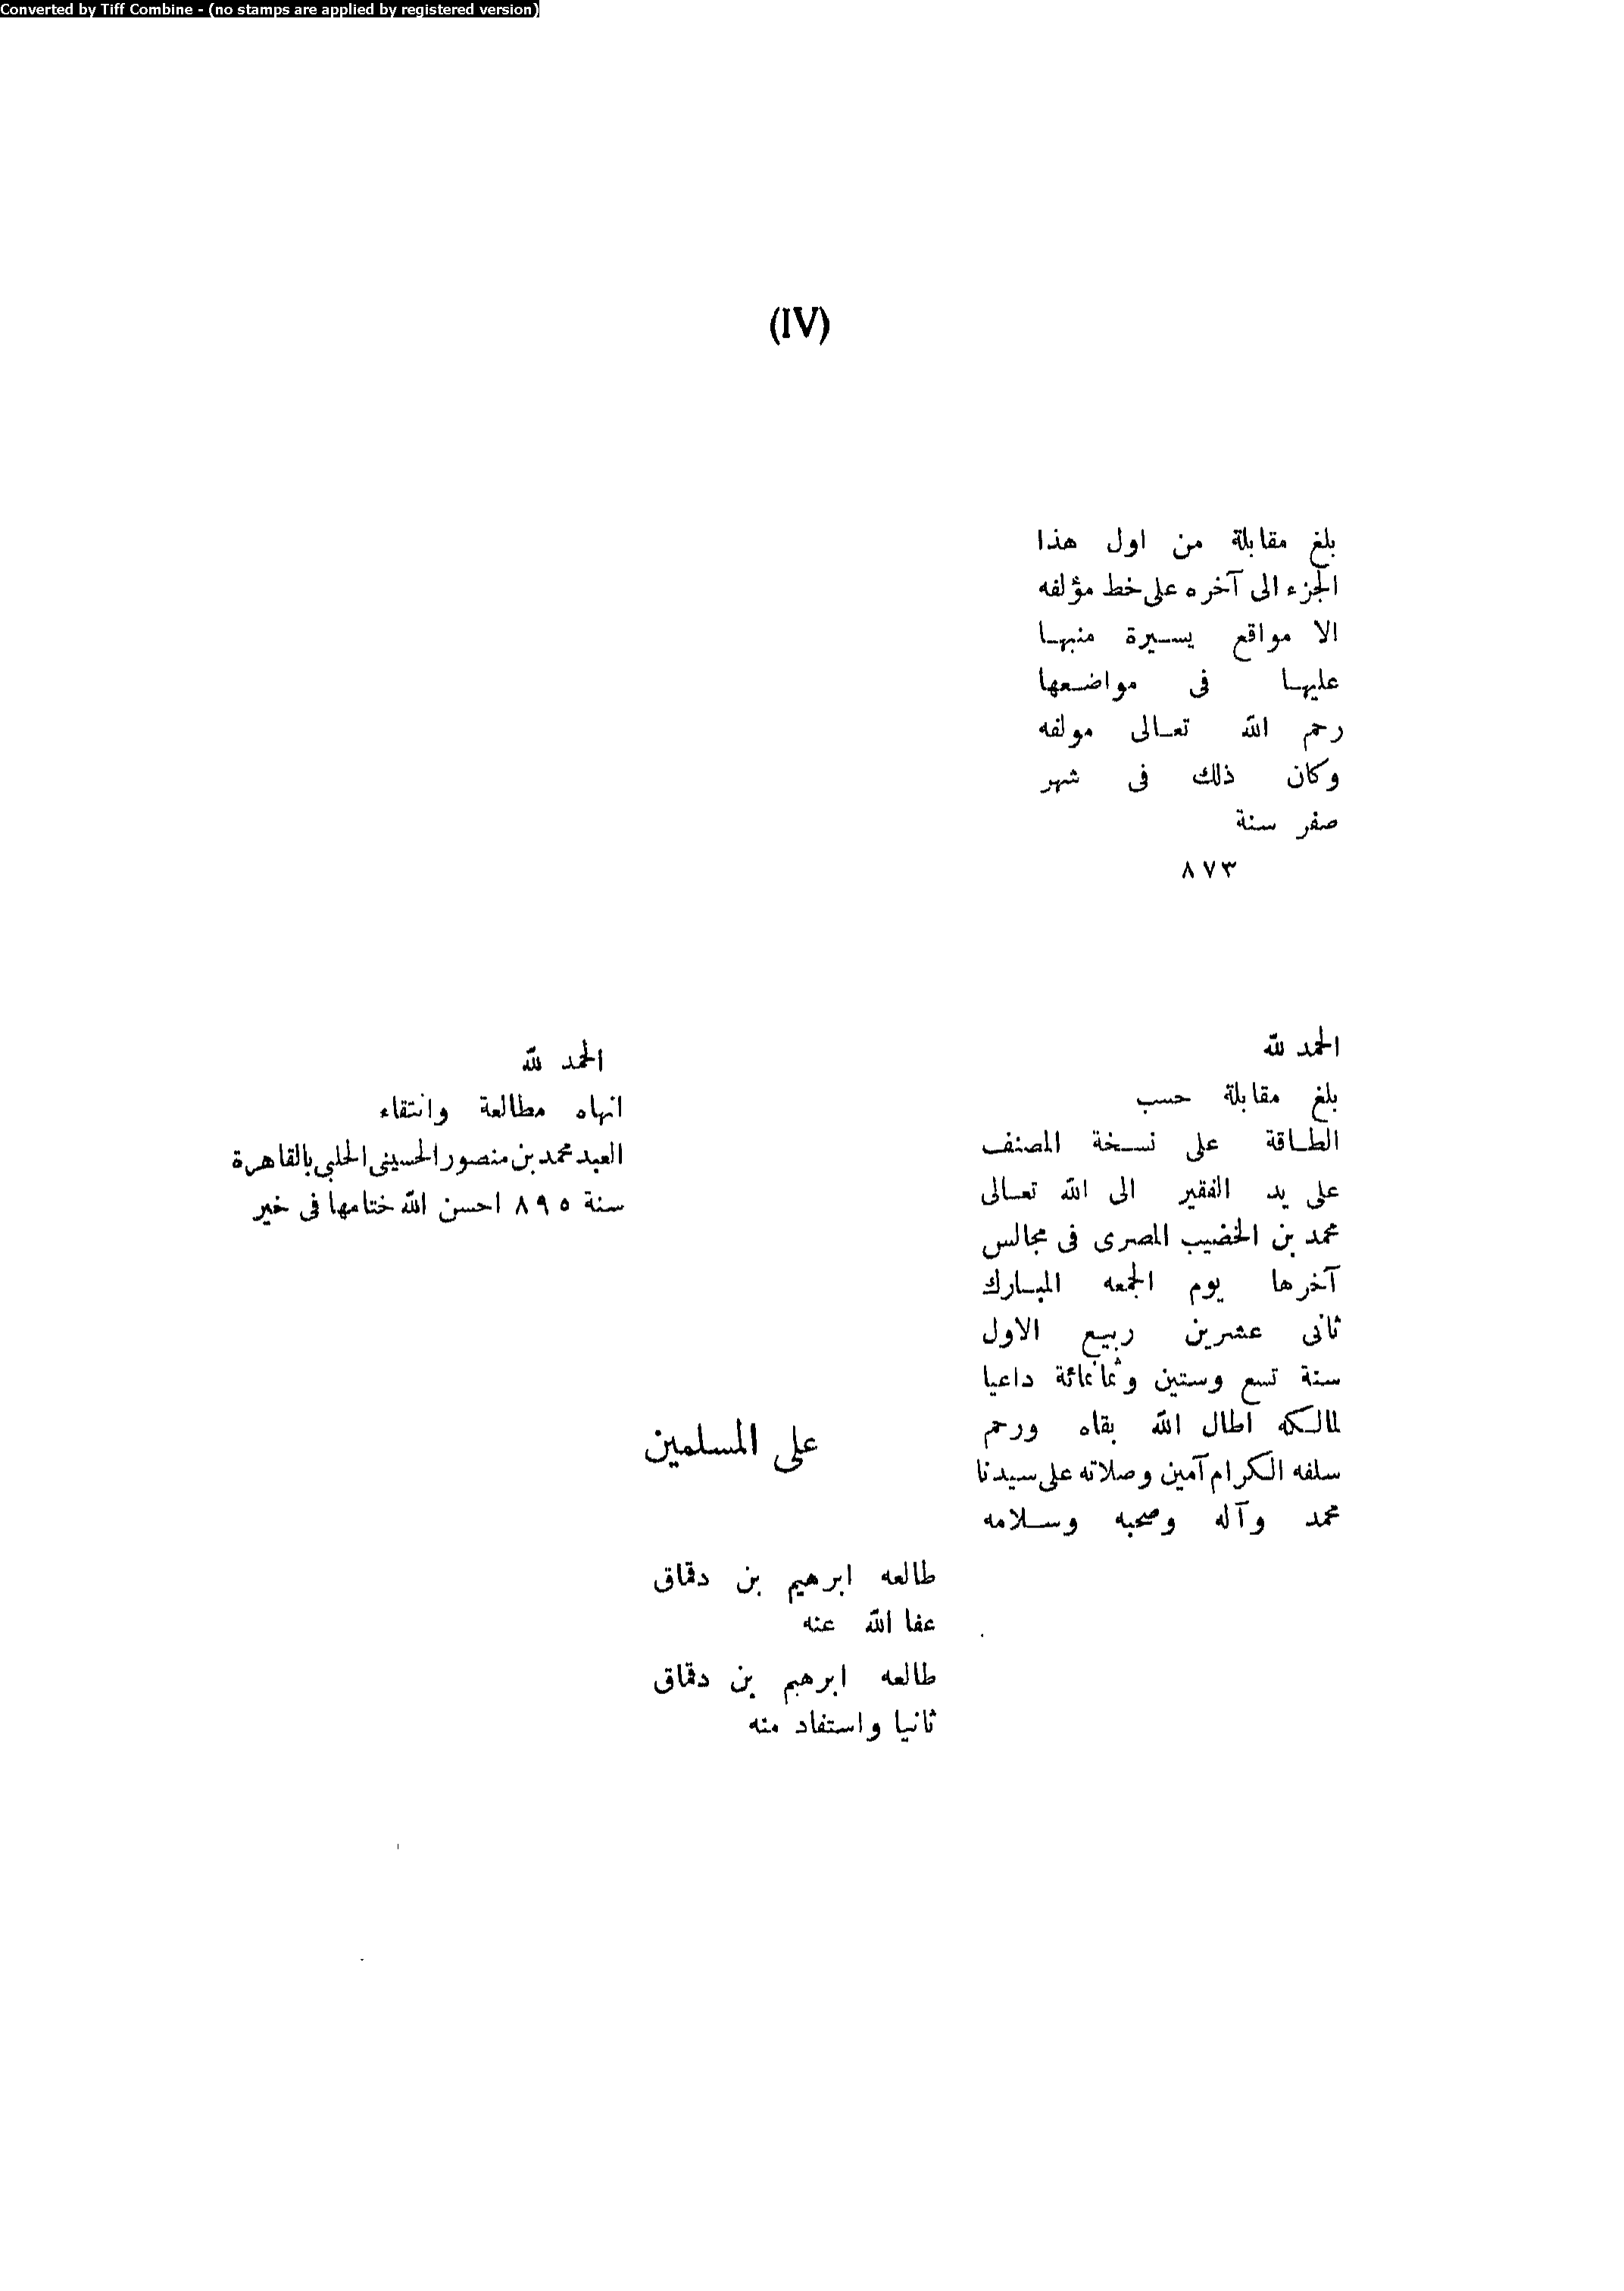 Converted by Tiff Combine - (no stamps are applied by registered version)
(IV)
بلغ مقابلة من اول هذا
الجزء الى آخره على خط مؤلفه
الا مواقع يسيرة منبها
عليها فى مواضعها
رحم الله تعالى مولفه
وكان ذلك فى شهر
صفر سنة
٨٧٣
الحمد لله
بلغ مقابلة حسب
الطاقة على نسخة المصنف
على يد الفقير الى الله تعالى
محمد بن الخضيب المصرى فى مجالس
آخرها يوم الجمعه المبارك
ثانى عشرين ربيع الاول
سنة تسع وستين وثمانمائة داعيا
لمالكه اطال الله بقاه ورحم
سلفه الكرام آمين وصلاته على سيدنا
محمد وآله وصحبه وسلامه
الحمد لله
انهاه مطالعة وانتقاء
العبد محمد بن منصور الحسينى الحلبى بالقاهرة
سنة ٨٩٥ احسن الله ختامها فى خير
على المسلمين
طالعه ابرهيم بن دقماق
عفا الله عنه
طالعه ابرهيم بن دقماق
ثانيا واستفاد منه